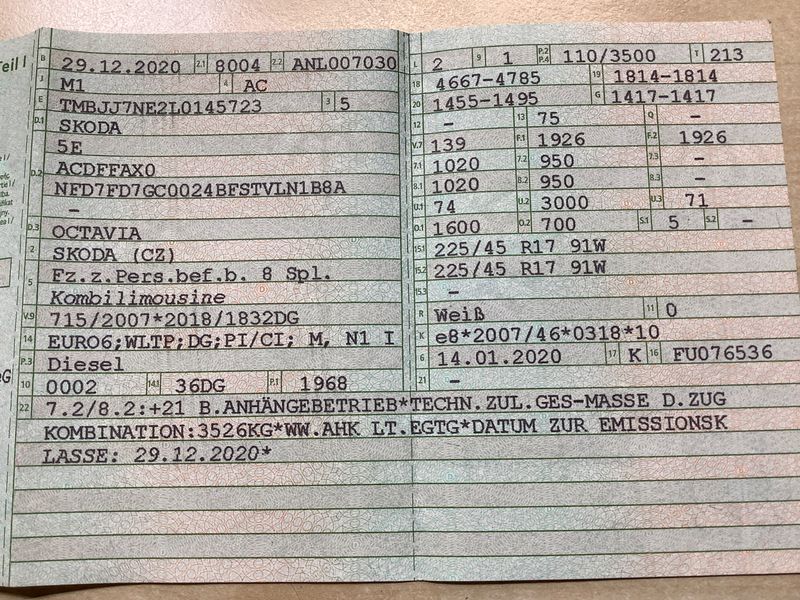 Teil I
B 29.12.2020 2.1 8004 2.2 ANL007030
J M1 4 AC
E TMBJJ7NE2L0145723 3 5
D.1 SKODA
5E
D.2 ACDFFAX0
NFD7FD7GC0024BFSTVLN1B8A
–
D.3 OCTAVIA
2 SKODA (CZ)
5 Fz.z.Pers.bef.b. 8 Spl.
Kombilimousine
V.9 715/2007*2018/1832DG
14 EURO6;WLTP;DG;PI/CI; M, N1 I
P.3 Diesel
10 0002 14.1 36DG P.1 1968
L 2 9 1 P.2 P.4 110/3500 T 213
18 4667-4785 19 1814-1814
20 1455-1495 G 1417-1417
12 – 13 75 Q –
V.7 139 F.1 1926 F.2 1926
7.1 1020 7.2 950 7.3 –
8.1 1020 8.2 950 8.3 –
U.1 74 U.2 3000 U.3 71
O.1 1600 O.2 700 S.1 5 S.2 –
15.1 225/45 R17 91W
15.2 225/45 R17 91W
15.3 –
R Weiß 11 0
K e8*2007/46*0318*10
6 14.01.2020 17 K 16 FU076536
21 –
22 7.2/8.2:+21 B.ANHÄNGEBETRIEB*TECHN.ZUL.GES-MASSE D.ZUG
KOMBINATION:3526KG*WW.AHK LT.EGTG*DATUM ZUR EMISSIONSK
LASSE: 29.12.2020*